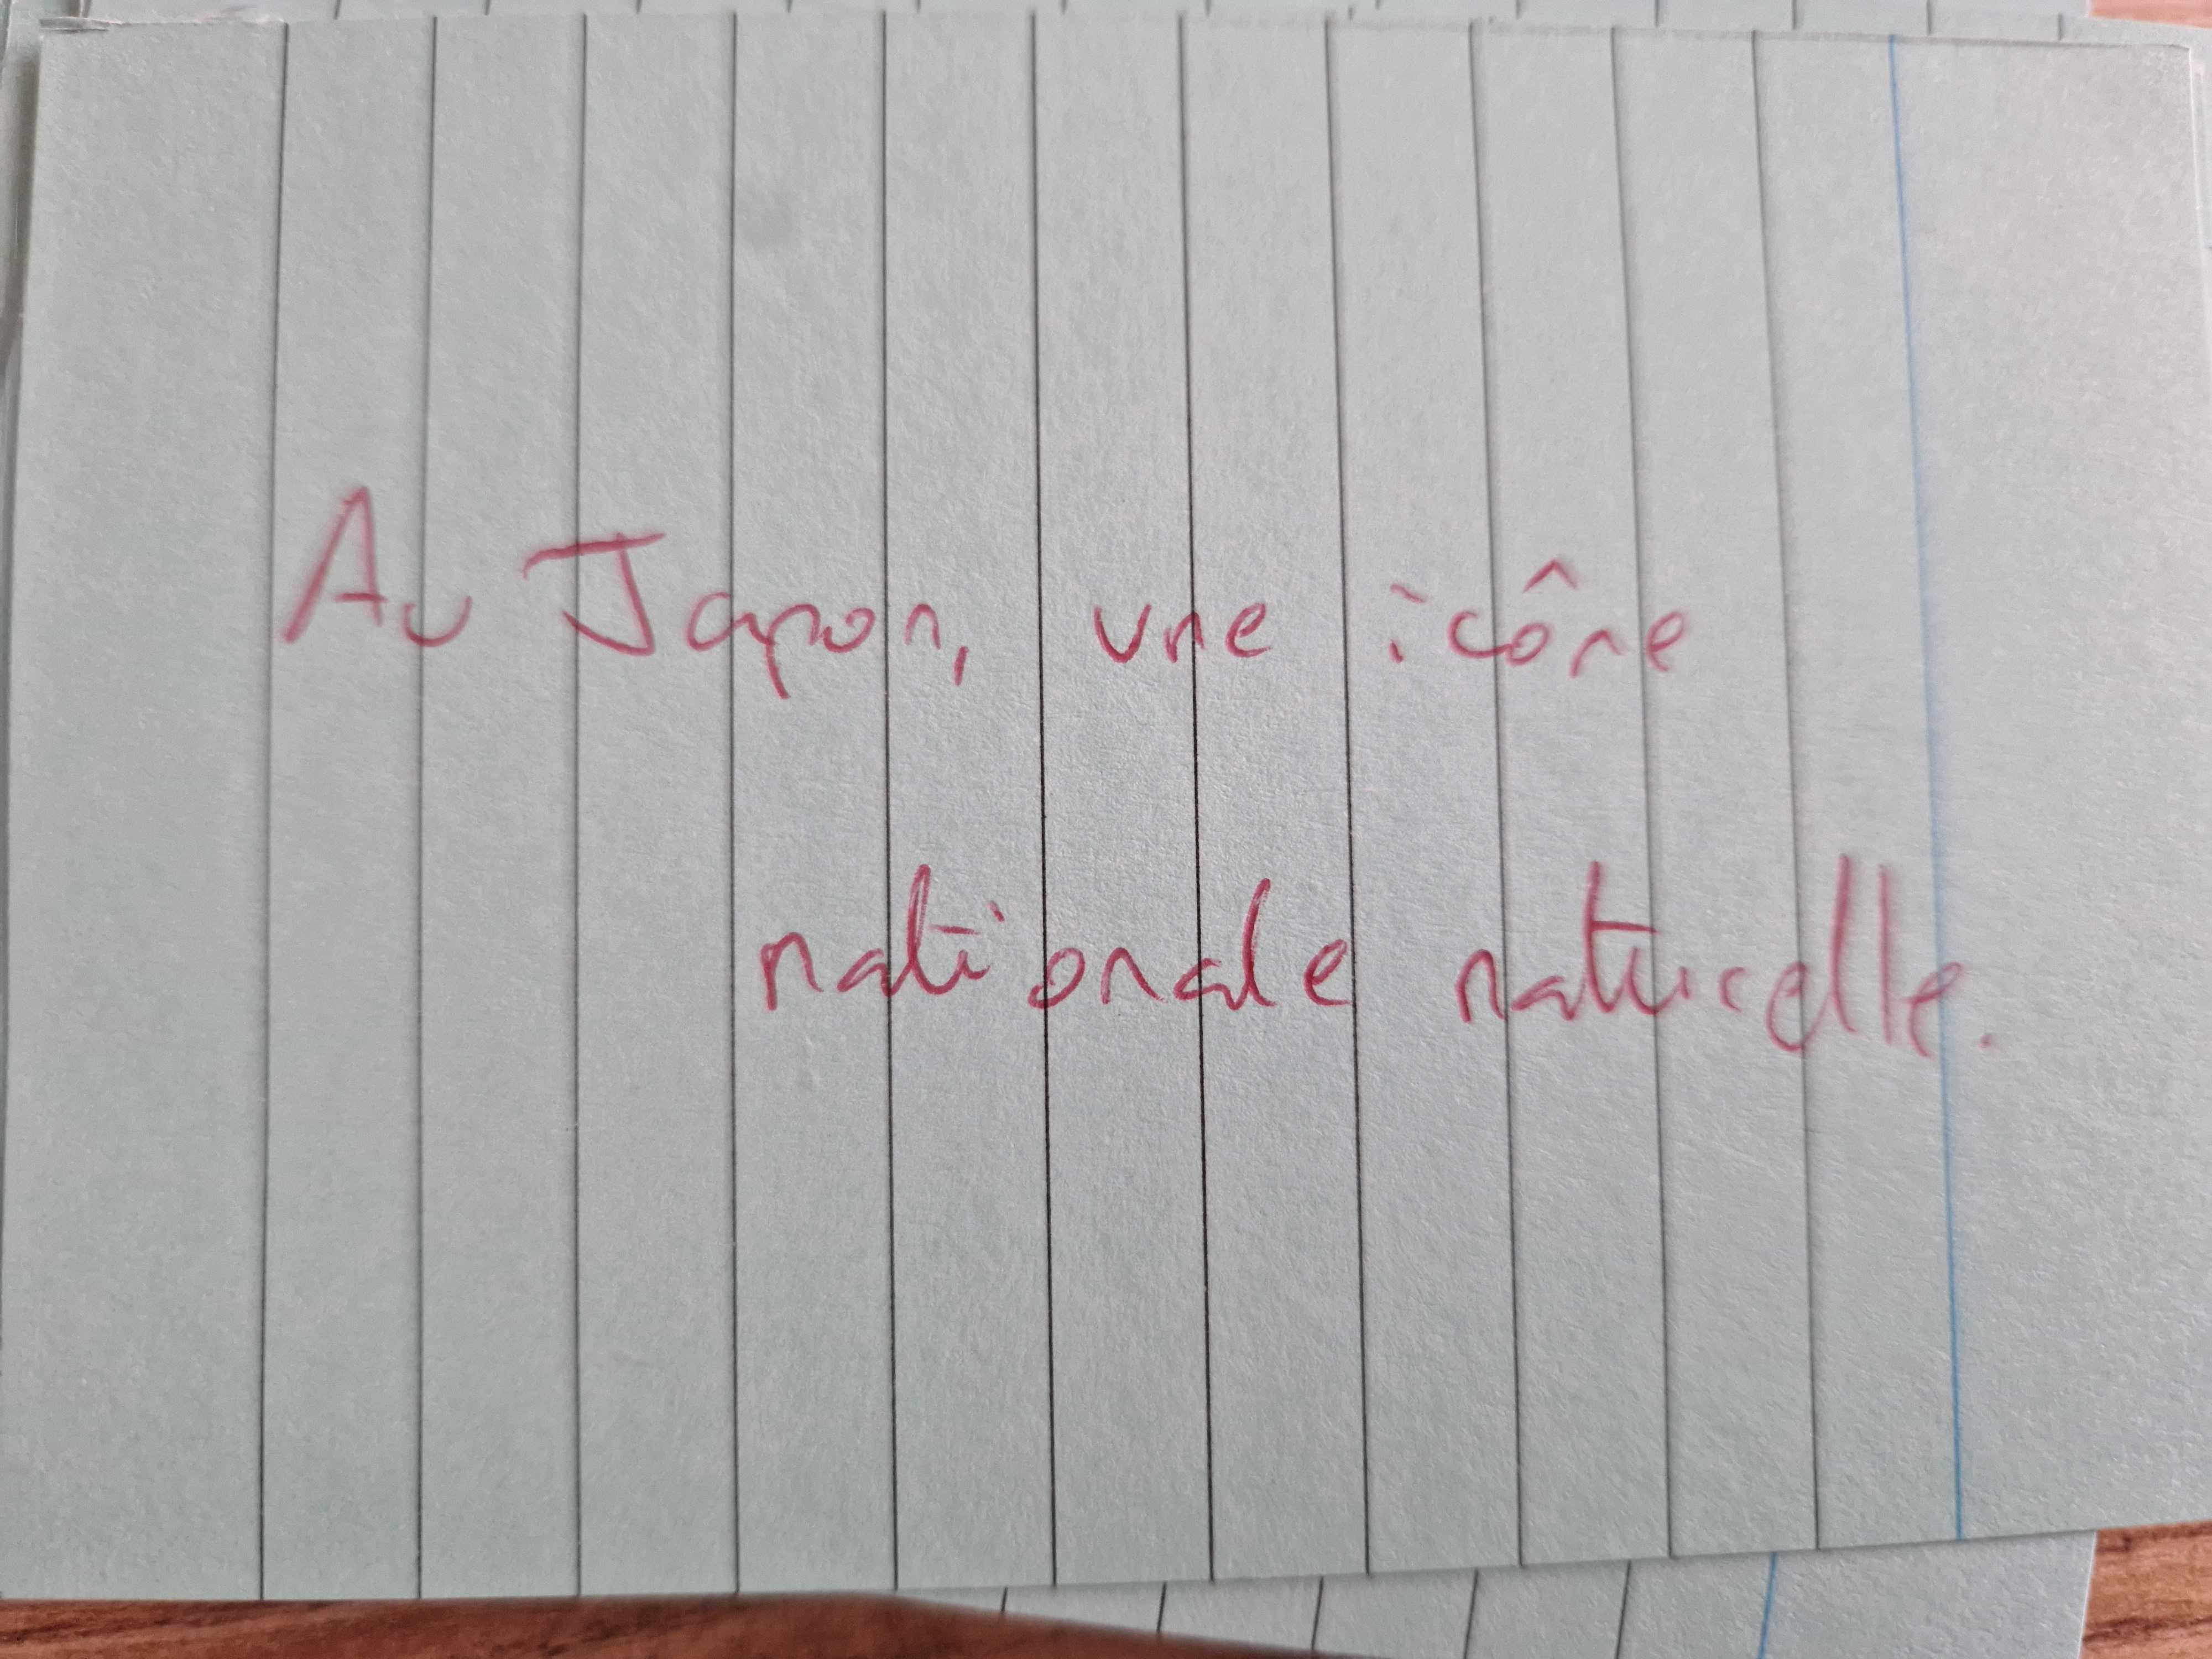 Au Japon, une icône
nationale naturelle.